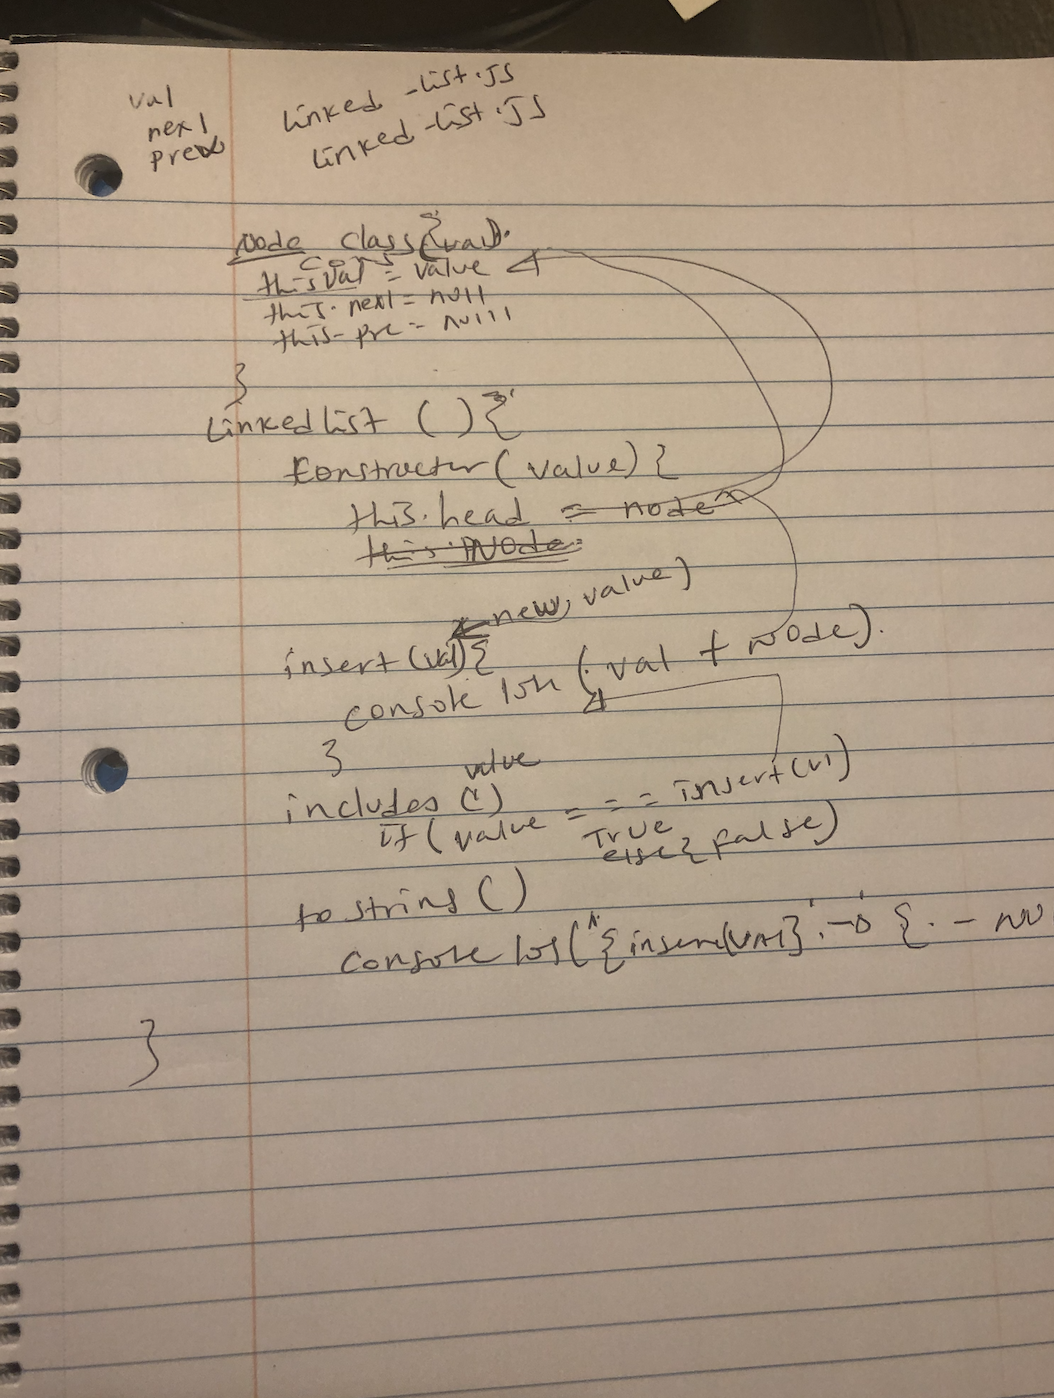 val
next
prev
Linked -List.JS
Linked -List.JS
Node class {(val).
cons
this val = value
this. next = null
this- pre = null
}
Linked list () {
constructer (value) {
this. head = node
this. Node
new, value)
insert (val) {
console log (val + Node).
}
value
includes ()
if (value === insert(vl)
True
else { false)
to string ()
console log ( {insert(val} . -> { . - NU
}